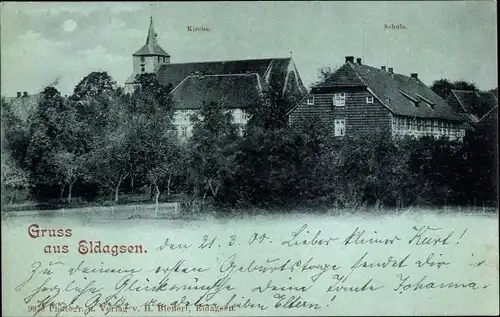 Kirche. Schule.
Gruss aus Eldagsen.
den 21. 3. 00. Lieber kleiner Kurt!
Zu deinem ersten Geburtstage sendet dir
herzliche Glückwünsche deine Tante Johanna.
Grüße deine lieben Eltern!
9973 Photogr. u. Verlag v. H. Bleffert, Eldagsen.